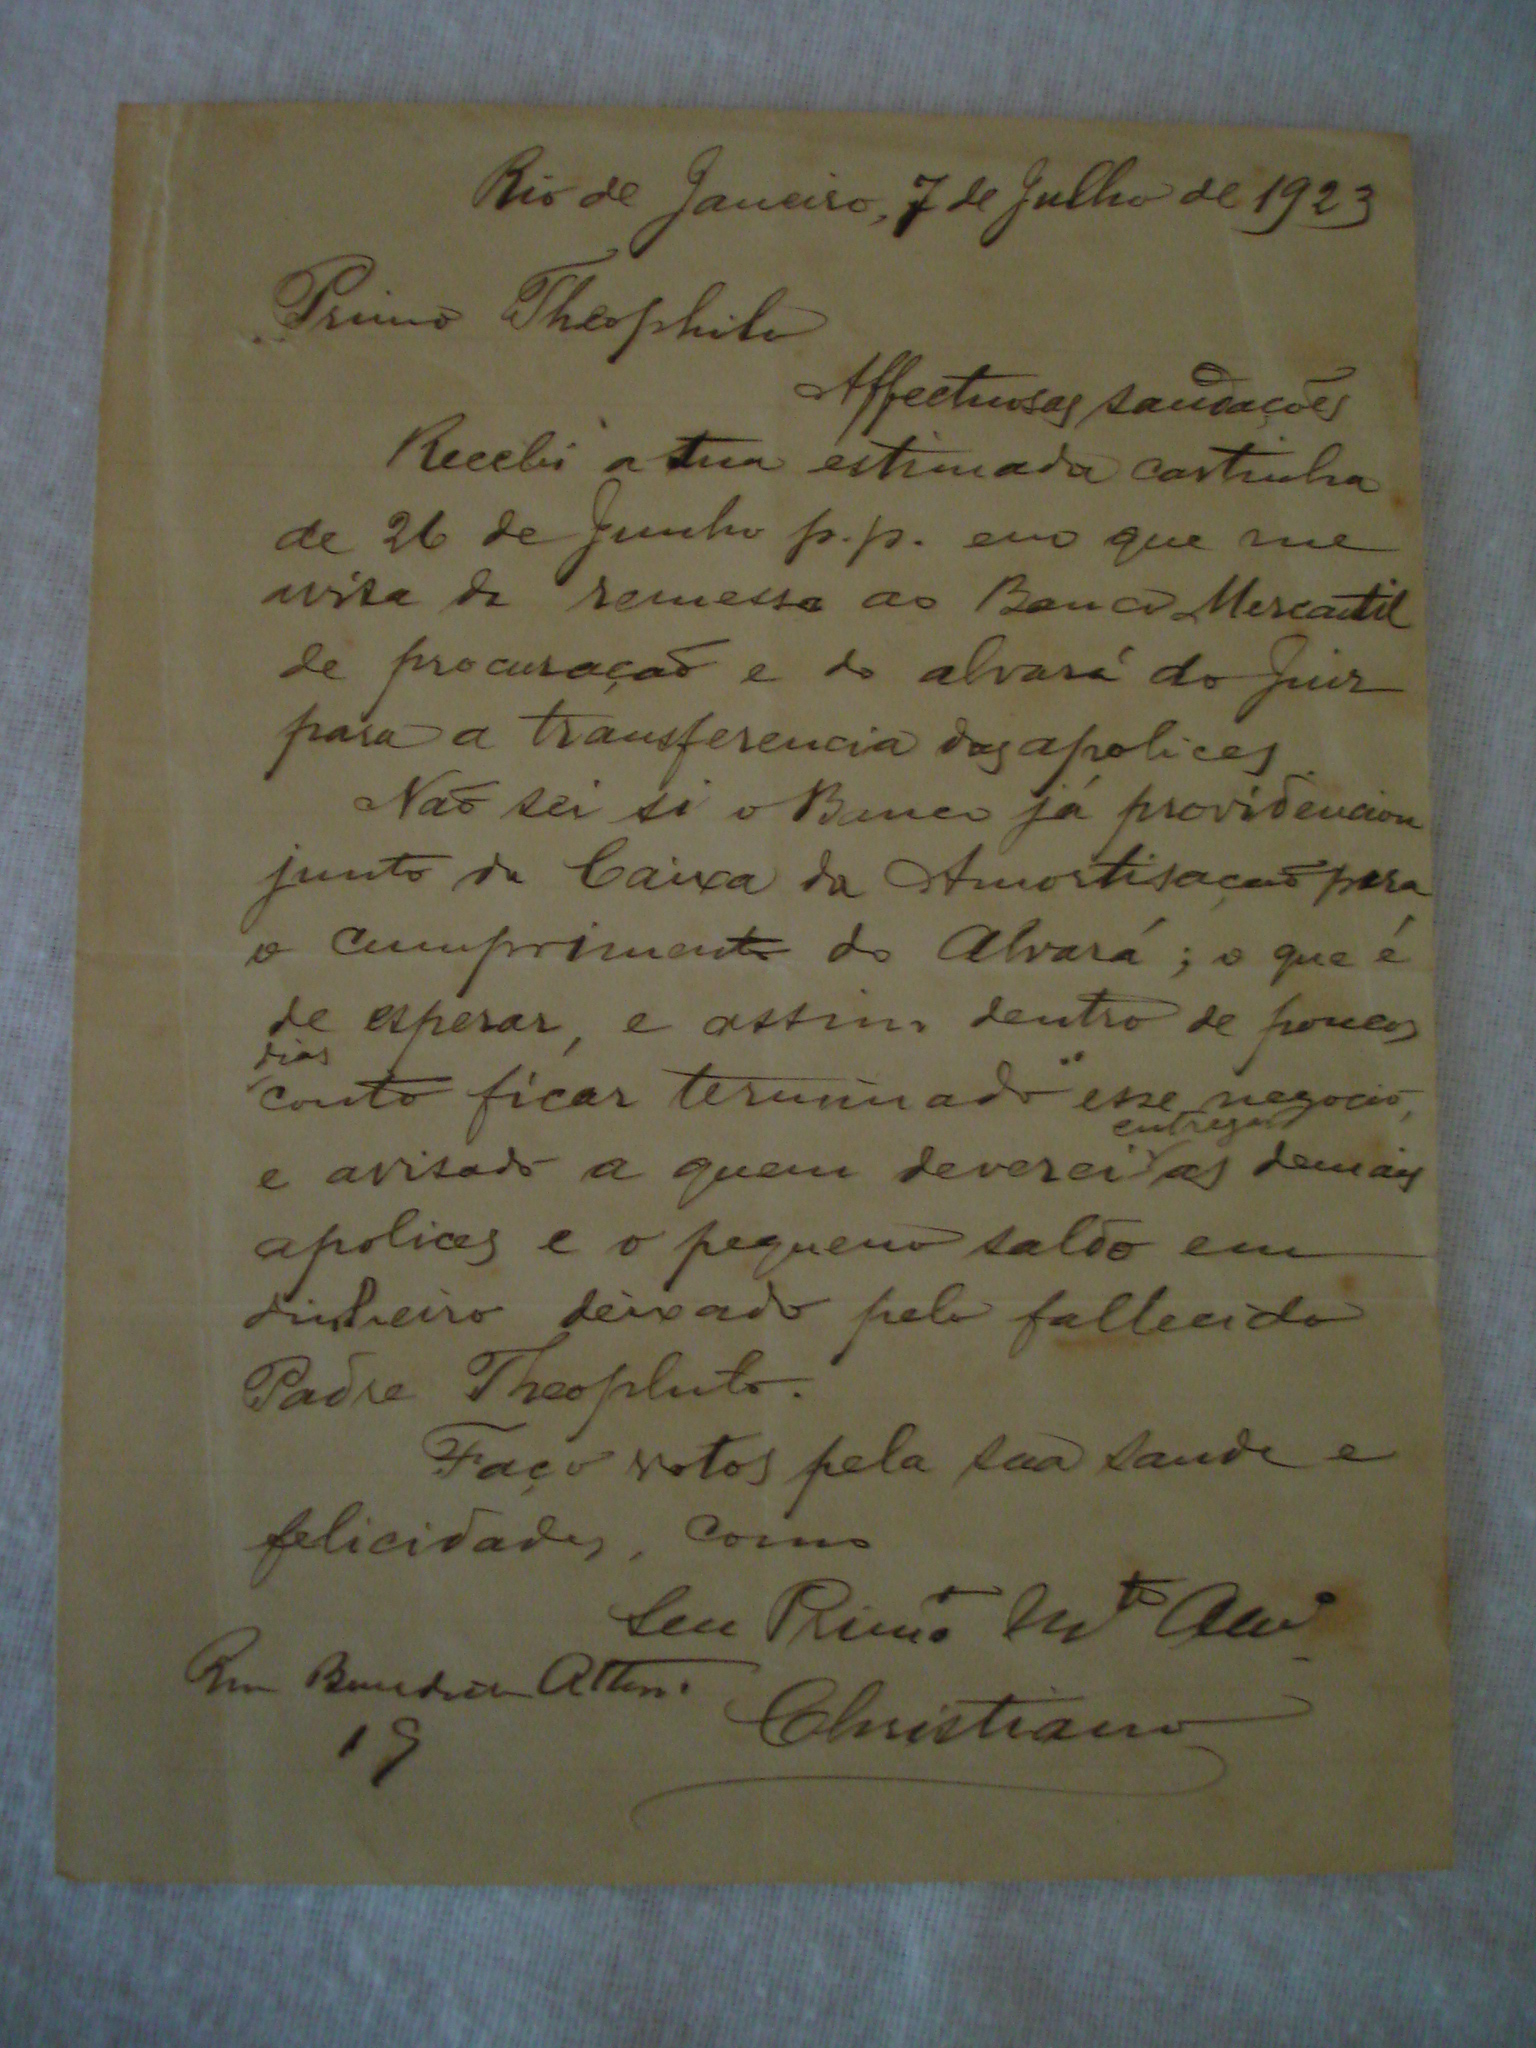 Rio de Janeiro, 7 de Julho de 1923
Primo Theophilo
Affectuosas saudações
Recebi a tua estimada cartinha
de 26 de Junho p.p. em que me
avisa da remessa ao Banco Mercantil
de procuração e do alvará do Juiz
para a transferencia das apolices
Não sei si o Banco já providenciou
junto da Caixa da Amortisação para
o cumprimento do Alvará; o que é
de esperar, e assim dentro de poucos
dias
conto ficar terminado esse negocio,
entregar
e avisado a quem deverei as demais
apolices e o pequeno saldo em
dinheiro deixado pelo fallecido
Padre Theophilo.
Faço votos pela sua saude e
felicidades, como
Seu Primo Mto Amo
Rua
Christiano
19